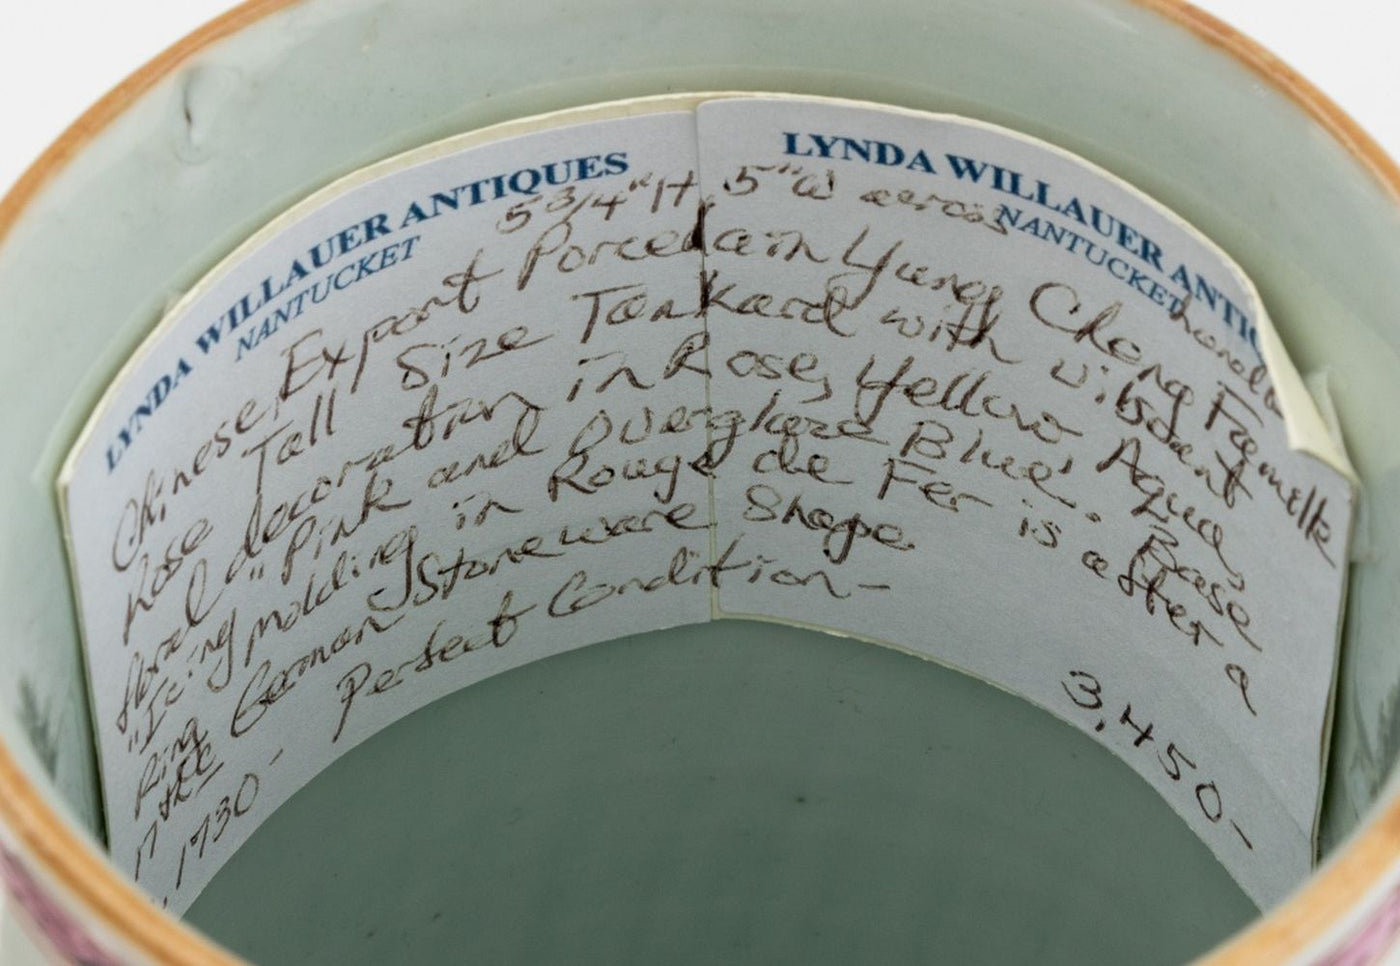 LYNDA WILLAUER ANTIQUES
NANTUCKET
LYNDA WILLAUER ANTIQ
NANTUCKET
5 3/4" Ht, 5" W across handle
Chinese Export Porcelain Yung Cheng Famille
Rose Tall Size Tankard with vibrant
floral decoration in Rose, Yellow, Aqua,
"Pink and Overglaze Blue. Base
"Icing molding in Rouge de Fer is after a
Ring
17thC German Stoneware Shape.
1730- Perfect Condition-
3,450-